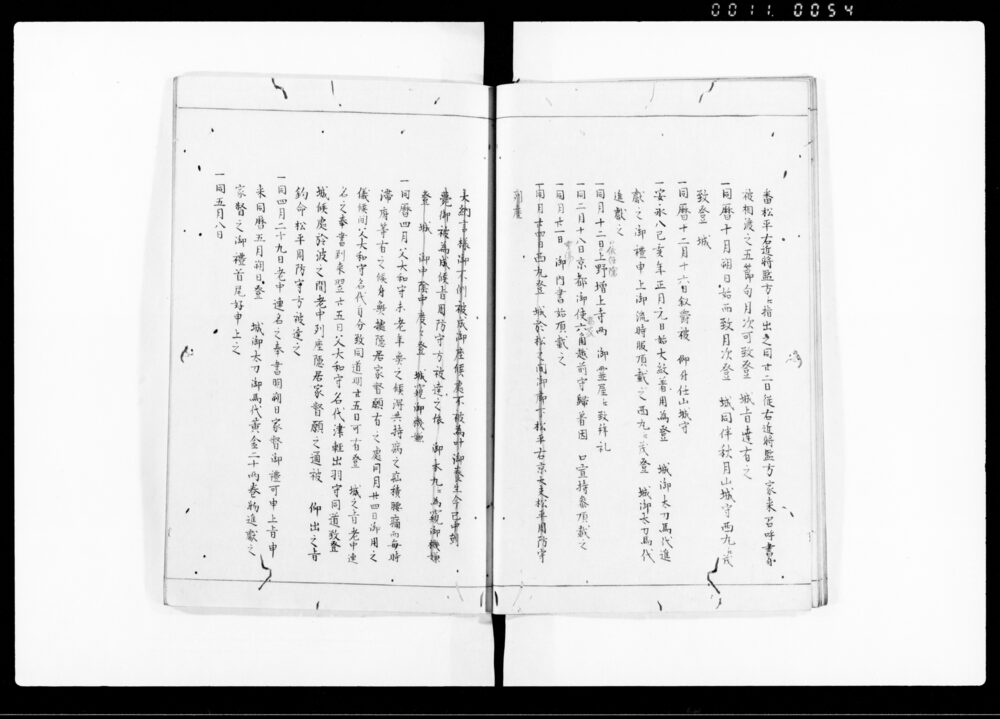 0011 0054
番松平右近将監方ニ指出之同廿二日従右近将監方家来召呼書付
被相渡之五節句月次可致登 城旨達有之
一同暦十月朔日始而致月次登 城同伴秋月山城守西丸ニ茂
致登 城
一同暦十二月十六日叙爵被 仰付任山城守
一安永八己亥年正月元日始大紋着用為登 城御太刀馬代進
献之御禮申上御流時服頂戴之西丸ニ茂登 城御太刀馬代
進献之
一同月十二日上野増上寺両 御霊屋ニ致拝礼
一同二月十八日京都御使六角越前守帰着因 口宣持参頂戴之
一同月廿一日 御内書始頂戴之
一同月廿四日西丸登 城於松之間御廊下松平右京大夫松平周防守
列座
大納言様御不例被成御座候処不被為叶御養生今巳中刻
薨御被為成候旨周防守方被達之依 御本丸ニ為窺御機嫌
登 城 御中陰中度々登 城窺御機嫌
一同暦四月父大和守未老年與之候得共持病之疝積腰痛而毎時
滞府等有之候身無據隠居家督願有之處同月廿四日御用之
儀候間父大和守名代自分致同道明廿五日可有登 城之旨老中連
名之奉書到来翌廿五日父大和守名代津軽出羽守同道致登
城候處於波之間老中列座隠居家督願之通被 仰出之旨
鈞命松平周防守方被達之
一同四月二十九日老中連名之奉書明朔日家督御禮可申上旨申
来同暦五月朔日登 城御太刀御馬代黄金二十両巻物進献之
家督之御禮首尾好申上之
一同五月八日